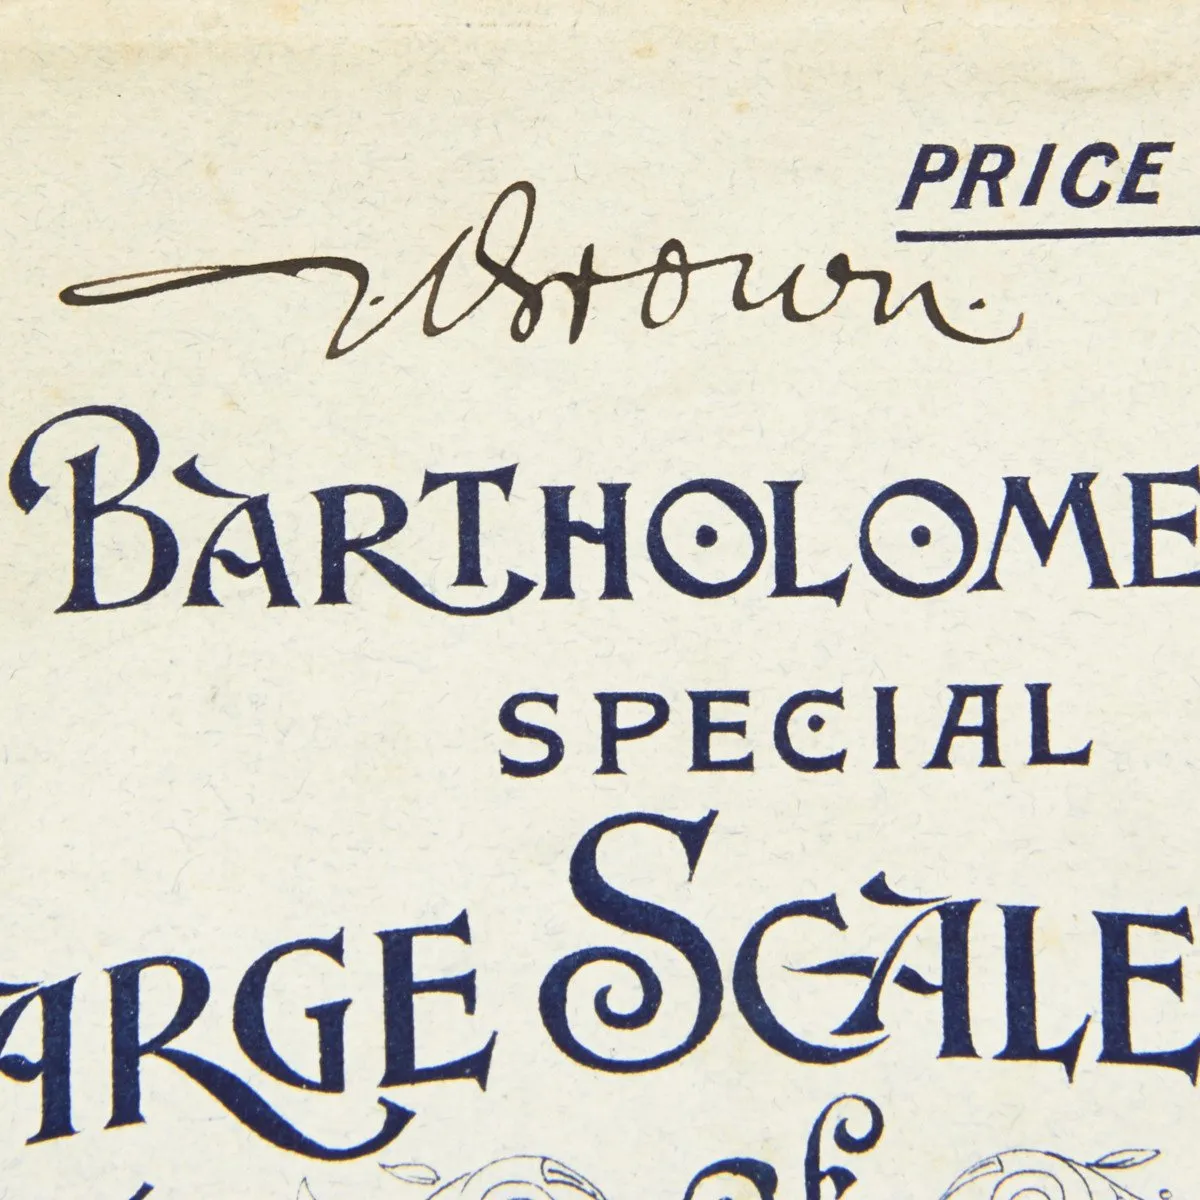 PRICE
J. Brown.
BARTHOLOME
SPECIAL
ARGE SCALE
of